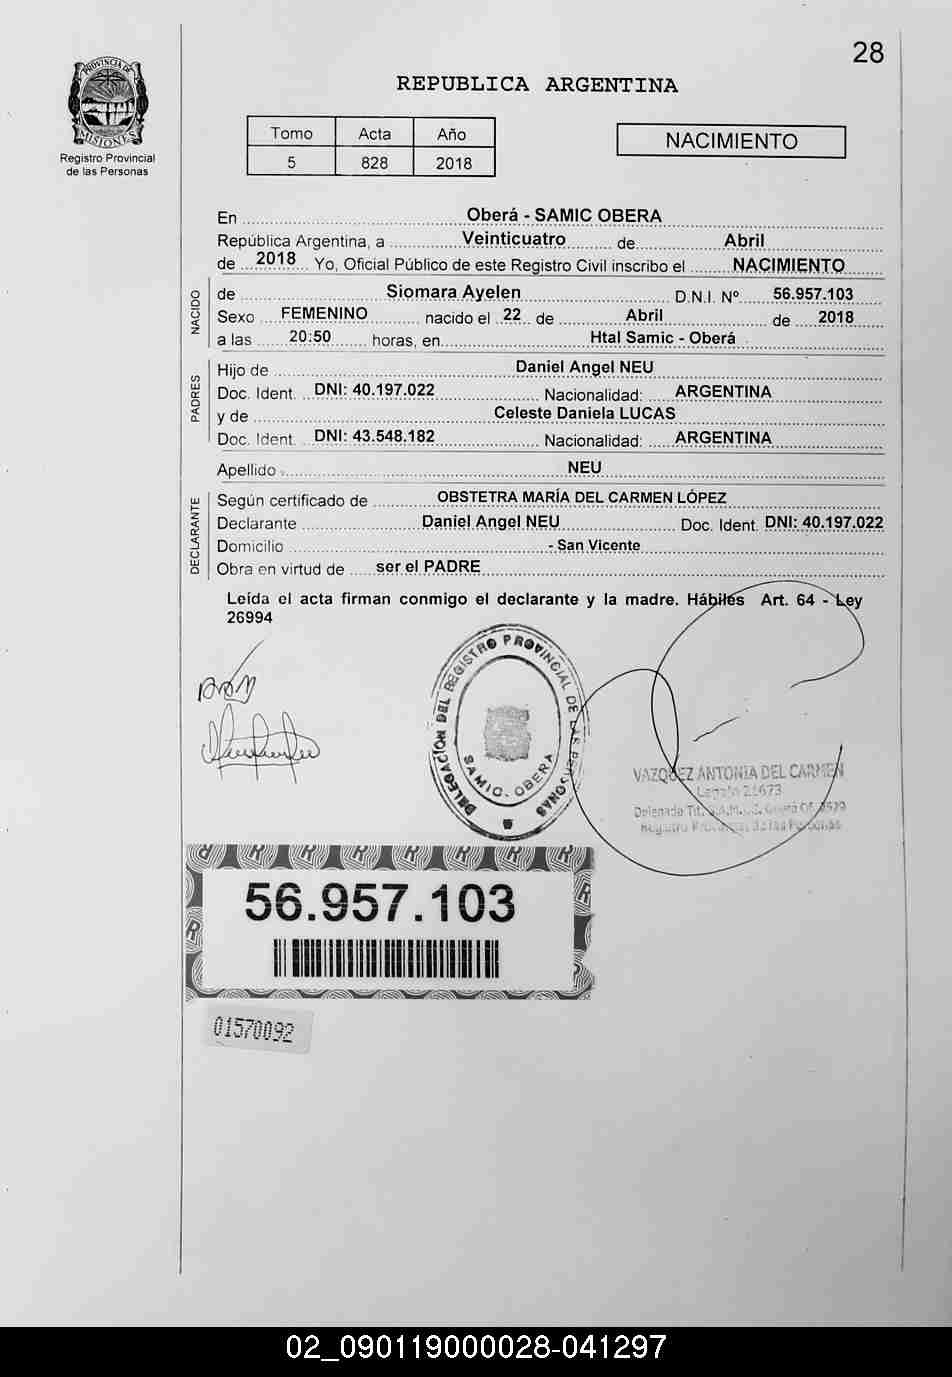 28
PROVINCIA DE
MISIONES
Registro Provincial
de las Personas
REPUBLICA ARGENTINA
Tomo Acta Año
5 828 2018
NACIMIENTO
En Oberá - SAMIC OBERA
República Argentina, a Veinticuatro de Abril
de 2018 Yo, Oficial Público de este Registro Civil inscribo el NACIMIENTO
NACIDO
de Siomara Ayelen D.N.I. Nº 56.957.103
Sexo FEMENINO nacido el 22 de Abril de 2018
a las 20:50 horas, en Htal Samic - Oberá
PADRES
Hijo de Daniel Angel NEU
Doc. Ident. DNI: 40.197.022 Nacionalidad: ARGENTINA
y de Celeste Daniela LUCAS
Doc. Ident. DNI: 43.548.182 Nacionalidad: ARGENTINA
Apellido NEU
DECLARANTE
Según certificado de OBSTETRA MARÍA DEL CARMEN LÓPEZ
Declarante Daniel Angel NEU Doc. Ident. DNI: 40.197.022
Domicilio - San Vicente
Obra en virtud de ser el PADRE
Leída el acta firman conmigo el declarante y la madre. Hábiles Art. 64 - Ley
26994
DELEGACION DEL REGISTRO PROVINCIAL DE LAS PERSONAS
SAMIC. OBERA
VAZQUEZ ANTONIA DEL CARMEN
Registro Provincial de las Personas
56.957.103
01570092
02_090119000028-041297